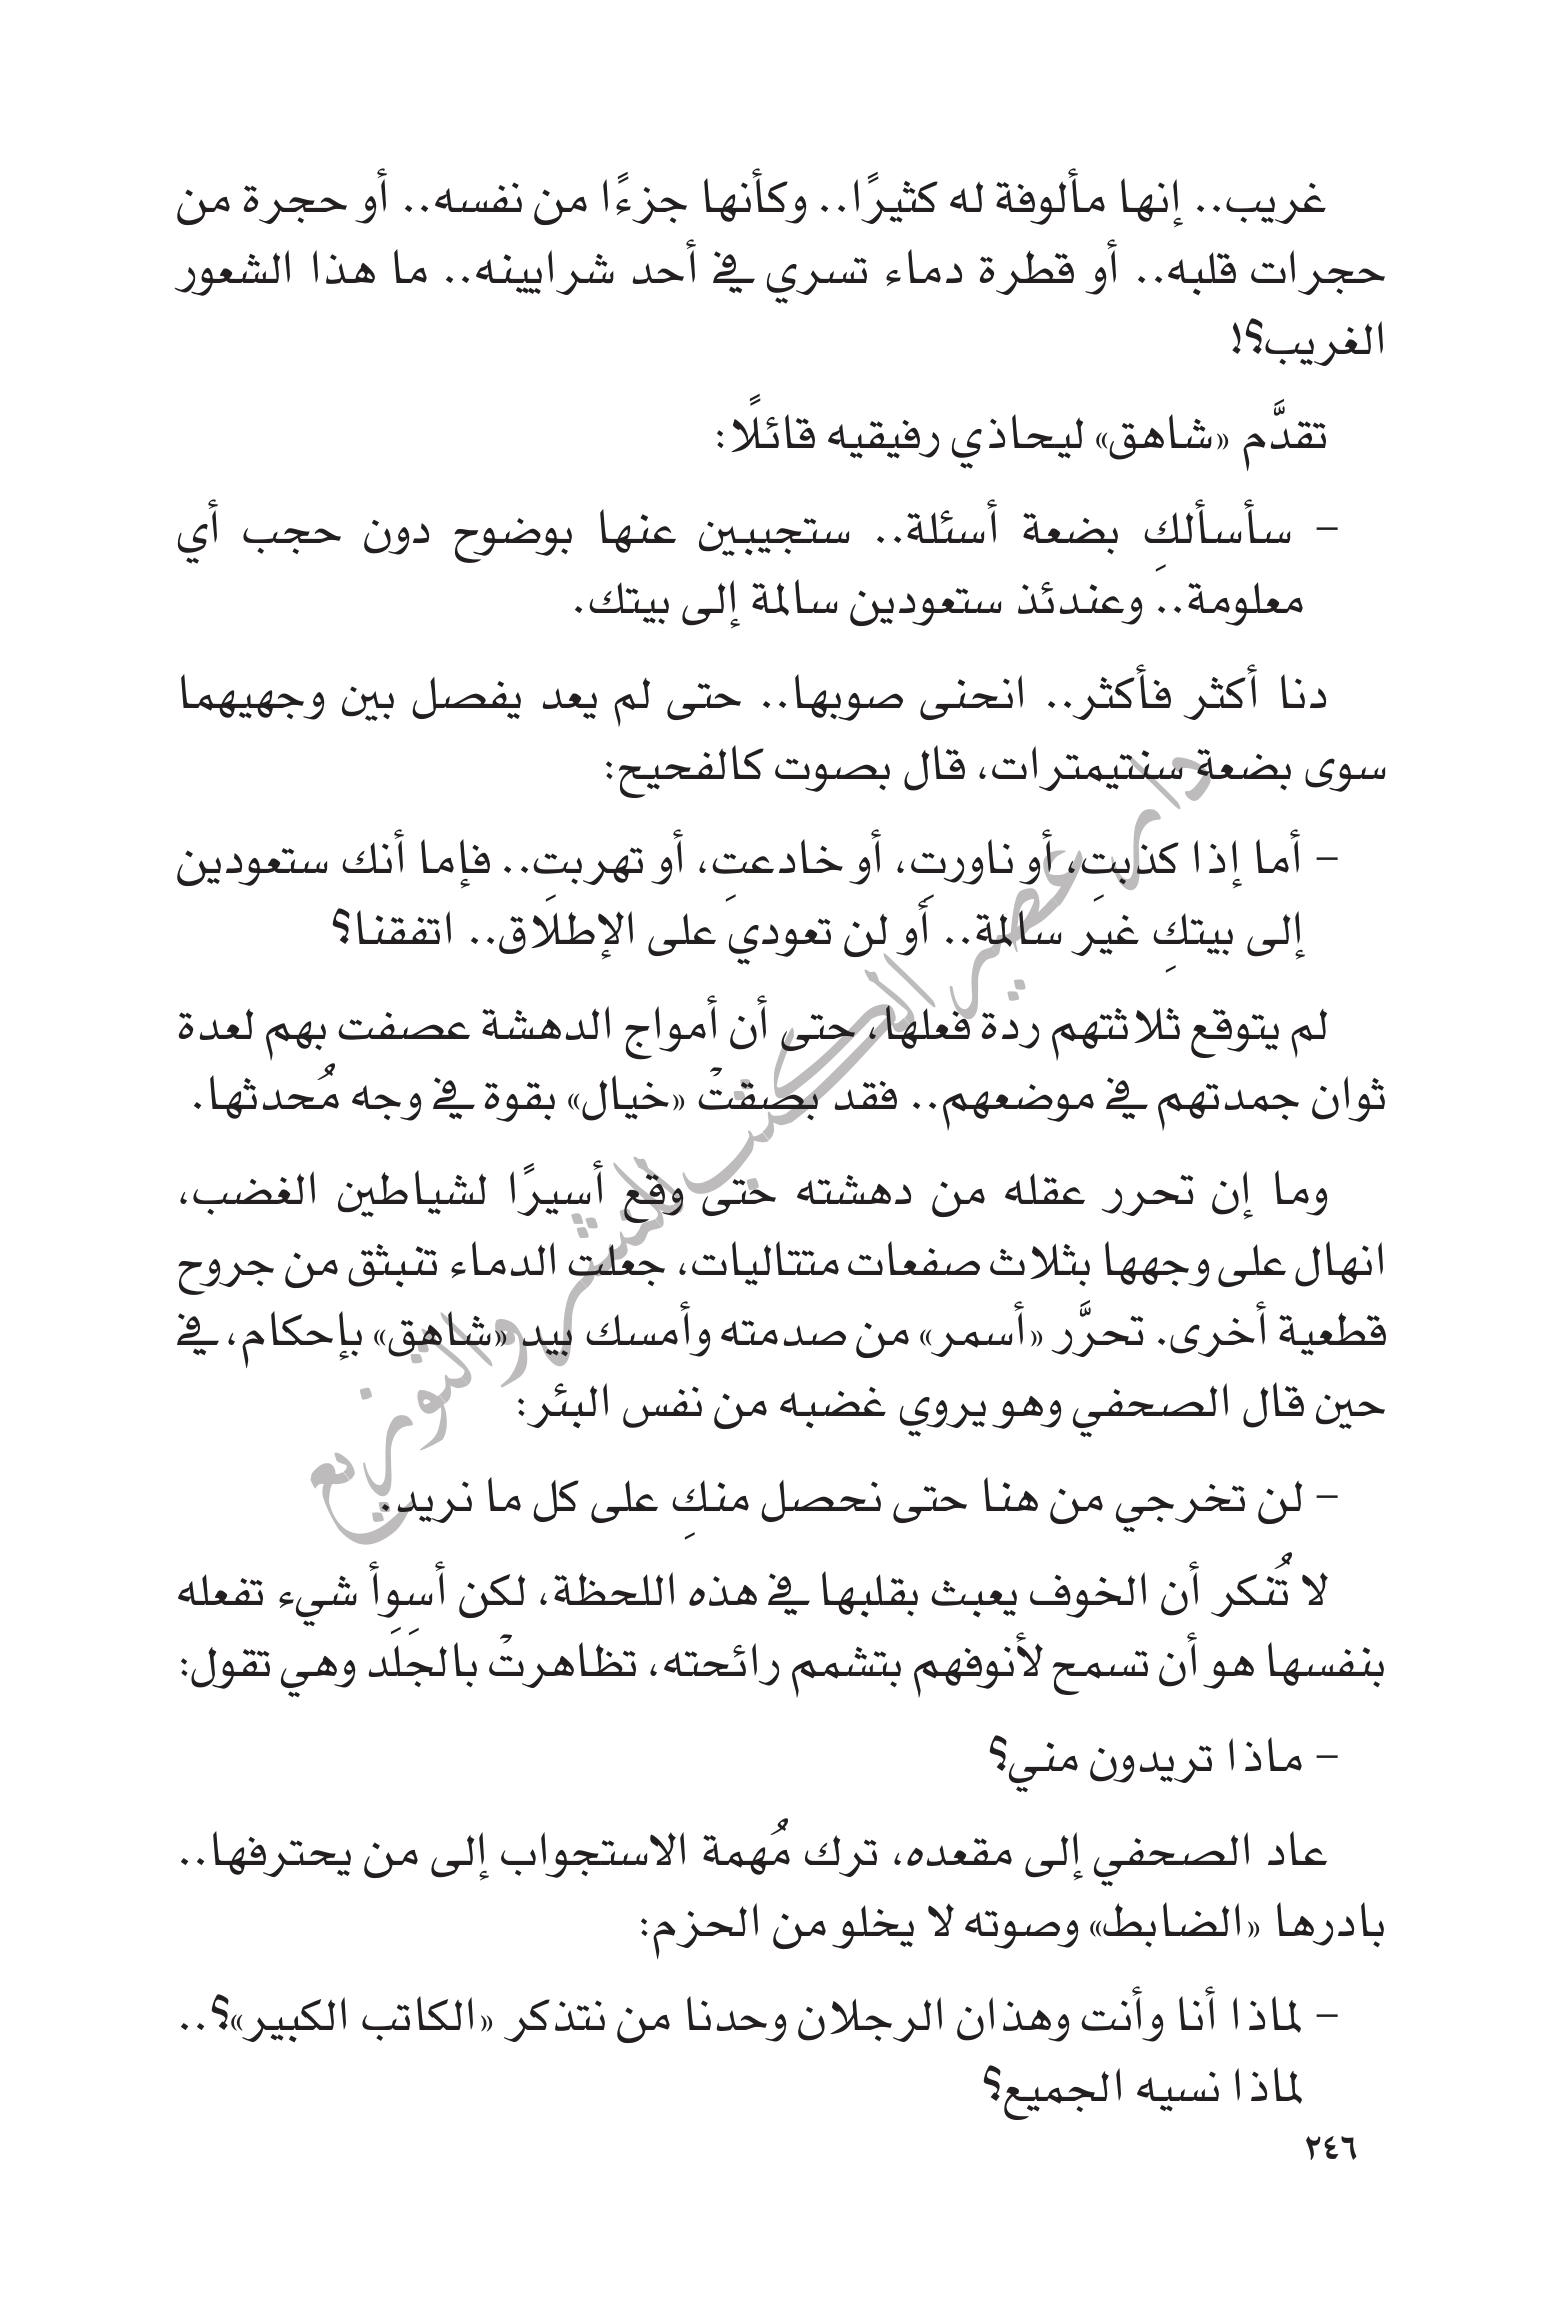 غريب.. إنها مألوفة له كثيرًا.. وكأنها جزءًا من نفسه.. أو حجرة من
حجرات قلبه.. أو قطرة دماء تسري في أحد شرايينه.. ما هذا الشعور
الغريب؟!
تقدَّم «شاهق» ليحاذي رفيقيه قائلًا:
– سأسألكِ بضعة أسئلة.. ستجيبين عنها بوضوح دون حجب أي
معلومة.. وعندئذ ستعودين سالمة إلى بيتك.
دنا أكثر فأكثر.. انحنى صوبها.. حتى لم يعد يفصل بين وجهيهما
سوى بضعة سنتيمترات، قال بصوت كالفحيح:
– أما إذا كذبتِ، أو ناورتِ، أو خادعتِ، أو تهربتِ.. فإما أنك ستعودين
إلى بيتكِ غير سالمة.. أو لن تعودي على الإطلاق.. اتفقنا؟
لم يتوقع ثلاثتهم ردة فعلها، حتى أن أمواج الدهشة عصفت بهم لعدة
ثوان جمدتهم في موضعهم.. فقد بصقتْ «خيال» بقوة في وجه مُحدثها.
وما إن تحرر عقله من دهشته حتى وقع أسيرًا لشياطين الغضب،
انهال على وجهها بثلاث صفعات متتاليات، جعلت الدماء تنبثق من جروح
قطعية أخرى. تحرَّر «أسمر» من صدمته وأمسك بيد «شاهق» بإحكام، في
حين قال الصحفي وهو يروي غضبه من نفس البئر:
– لن تخرجي من هنا حتى نحصل منكِ على كل ما نريد.
لا تُنكر أن الخوف يعبث بقلبها في هذه اللحظة، لكن أسوأ شيء تفعله
بنفسها هو أن تسمح لأنوفهم بتشمم رائحته، تظاهرتْ بالجَلَد وهي تقول:
– ماذا تريدون مني؟
عاد الصحفي إلى مقعده، ترك مُهمة الاستجواب إلى من يحترفها..
بادرها «الضابط» وصوته لا يخلو من الحزم:
– لماذا أنا وأنت وهذان الرجلان وحدنا من نتذكر «الكاتب الكبير»؟..
لماذا نسيه الجميع؟
٢٤٦
دار عصير الكتب للنشر والتوزيع